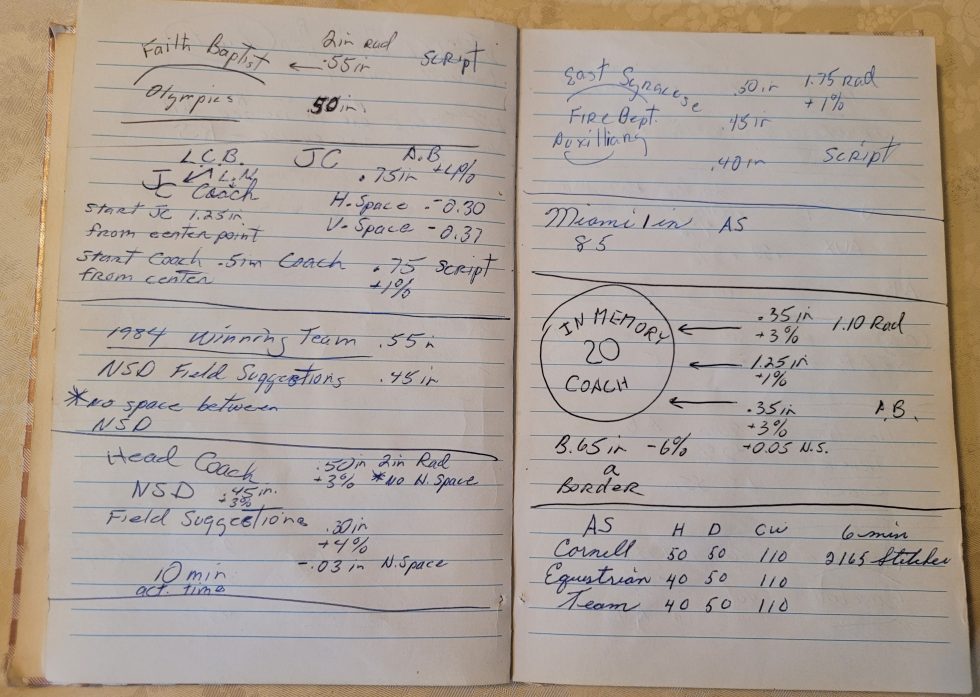 Faith Baptist 2in rad
.55in Script
Olympics .50in
L.C.B. JC A.B
J L.N. .75in +4%
C Coach H-Space -0.30
Start JC 1.25in V-Space -0.37
from center point
Start Coach .5in Coach .75 Script
from center +1%
1984 Winning Team .55in
NSD Field Suggestions .45in
*No space between
NSD
Head Coach .50in 2in Rad
+3% *No H. Space
NSD .45in.
+3%
Field Suggestions .30in
+4%
-.03in N.Space
10 min
act. time
East Syracuse .50in 1.75 Rad
+1%
Fire Dept. .45in
Auxilliary
.40in Script
Miami 1in AS
85
IN MEMORY .35in 1.10 Rad
+3%
20 1.25in
+1%
COACH .35in A.B.
+3%
3.65in -6% +0.05 N.S.
a
Border
AS H D CW 6 min
Cornell 50 50 110 2165 Stitches
Equestrian 40 50 110
Team 40 50 110